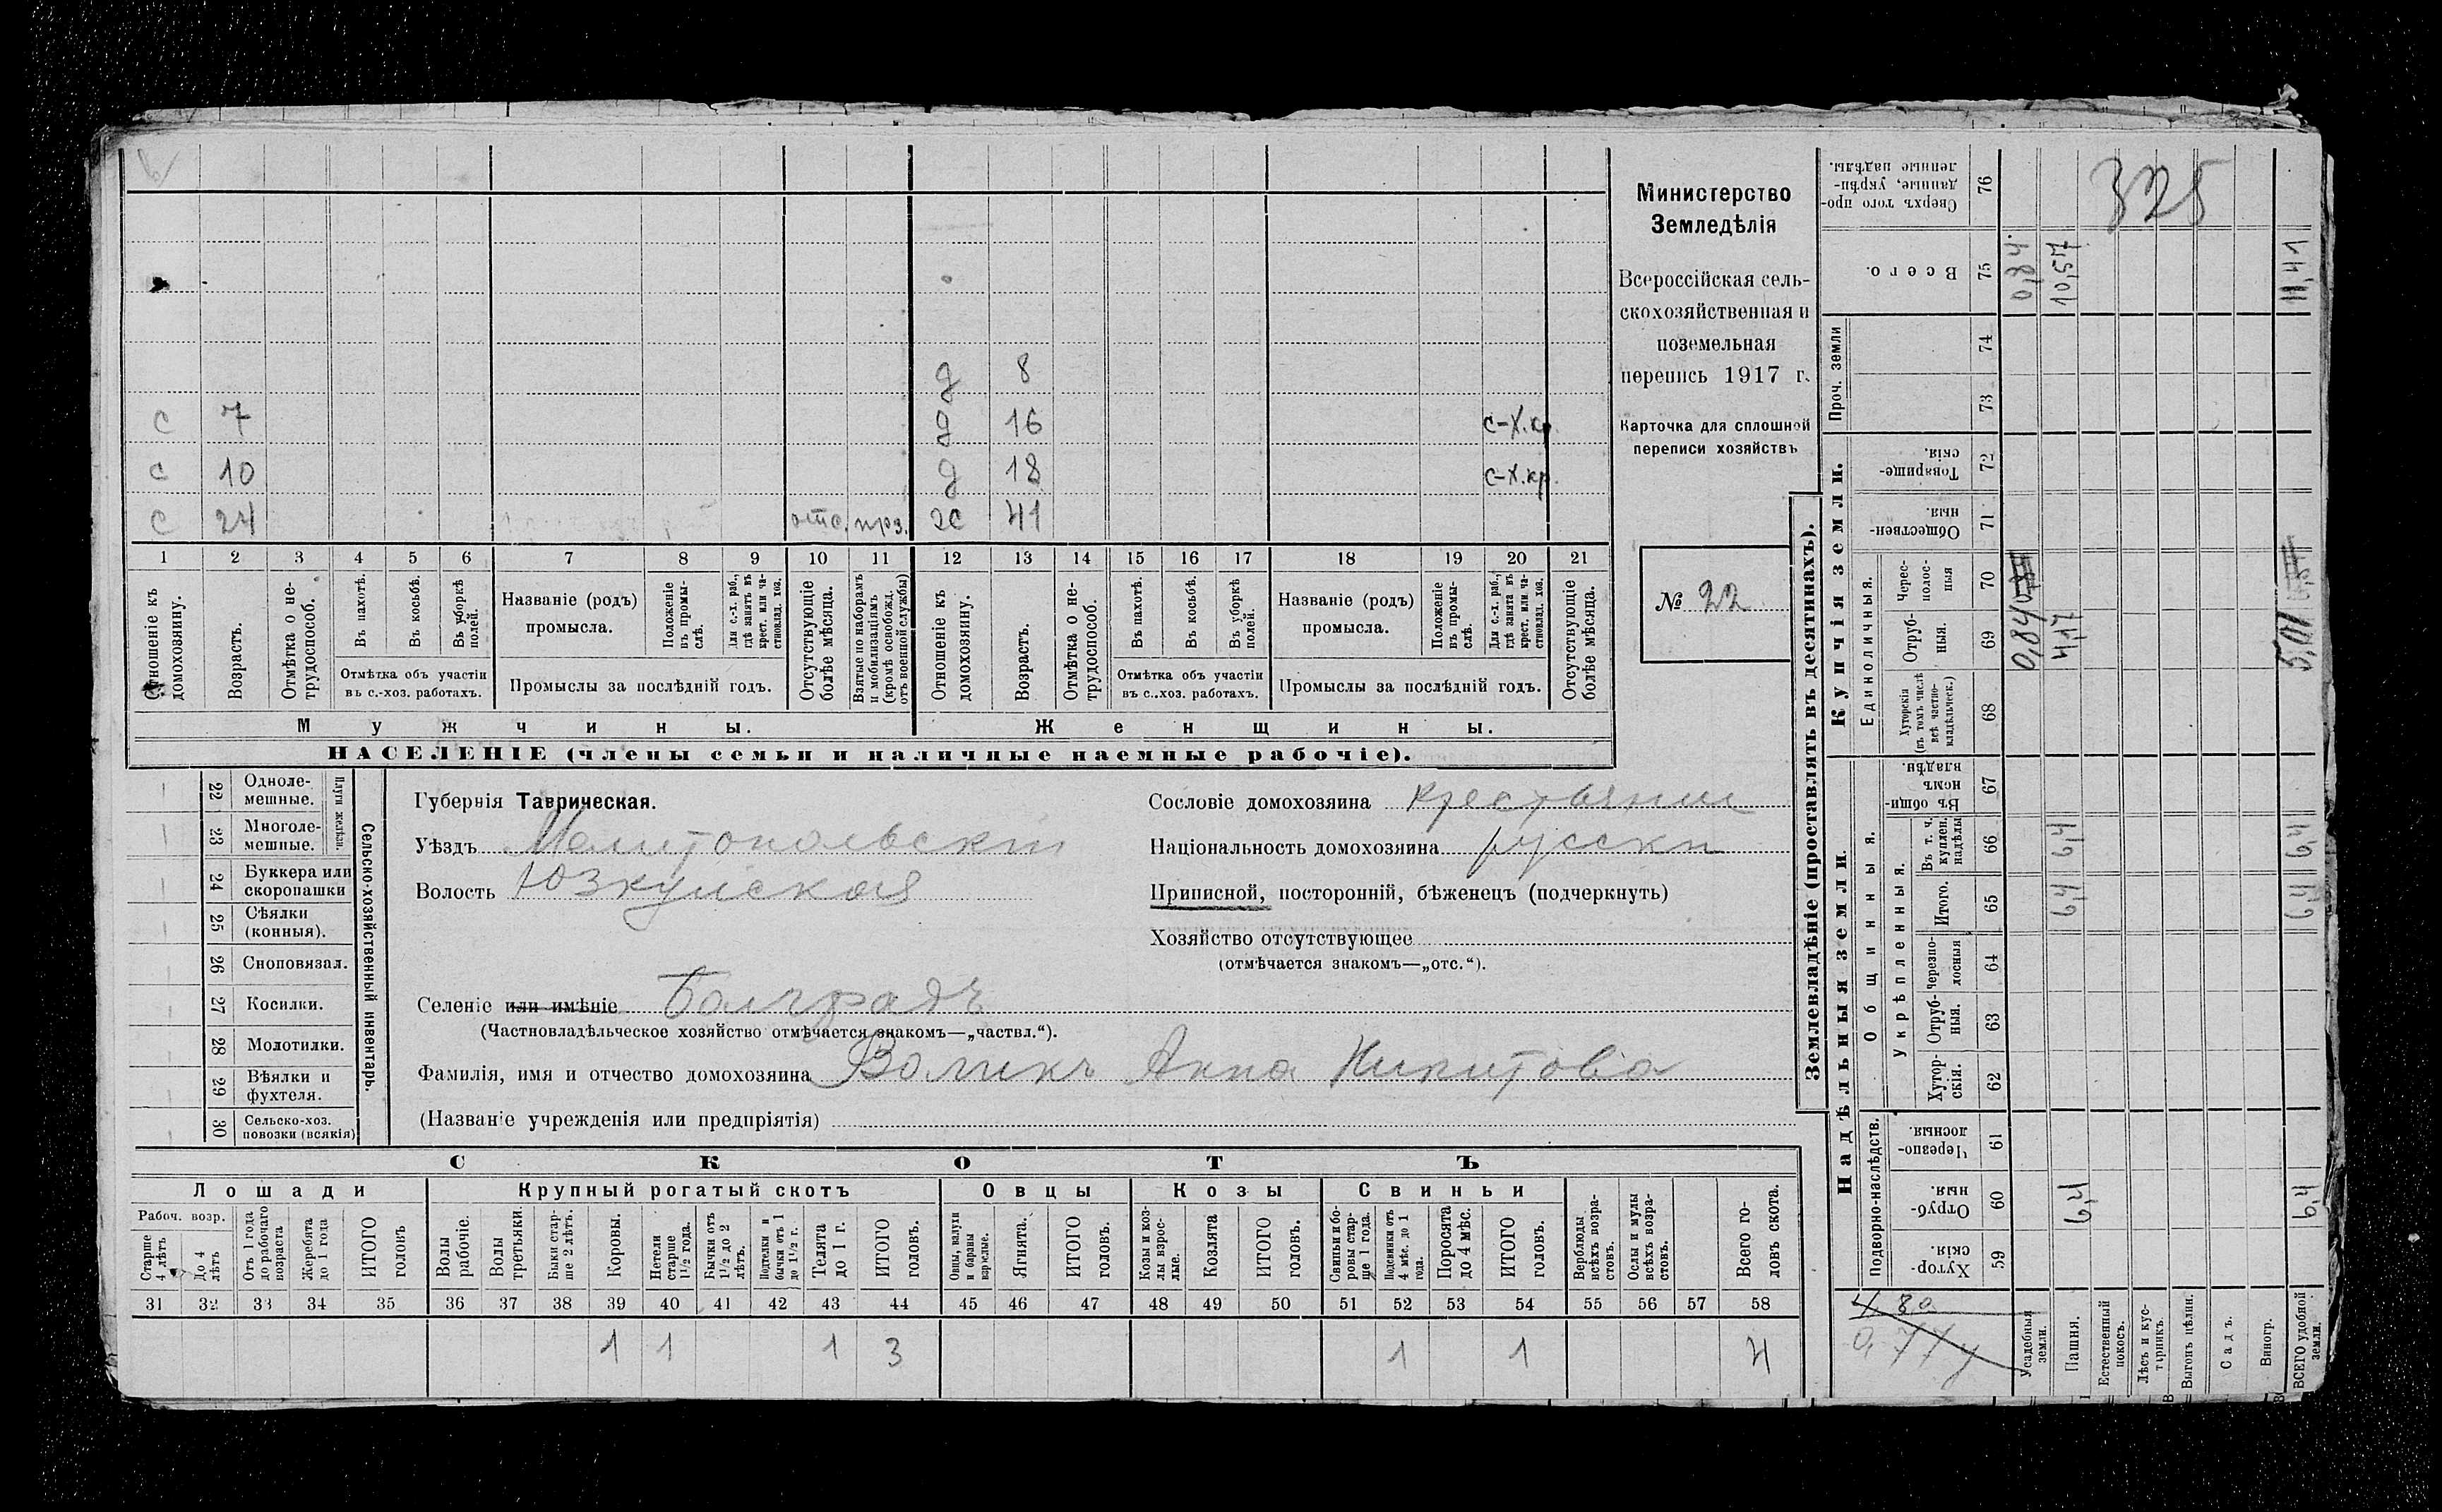 с 7
с 10
с 24 отс. прз.
д 8
д 16 с-х.кр.
д 18 с-х.кр.
41
1 2 3 4 5 6 7 8 9 10 11 12 13 14 15 16 17 18 19 20 21
Отношеніе къ домохозяину.
Возрастъ.
Отмѣтка о не-
трудоспособ.
Въ пахотѣ.
Въ косьбѣ.
Въ уборкѣ полей.
Отмѣтка объ участіи
въ с.-хоз. работахъ.
Названіе (родъ)
промысла.
Положеніе въ промы-
слѣ.
Для с.-х. раб., гдѣ занятъ въ крест. или ча-
стновлад. хоз.
Промыслы за послѣдній годъ.
Отсутствующіе болѣе мѣсяца.
Взятые по наборамъ и мобилизаціямъ (кромѣ освобожд. отъ военной службы)
Отношеніе къ домохозяину.
Возрастъ.
Отмѣтка о не-
трудоспособ.
Въ пахотѣ.
Въ косьбѣ.
Въ уборкѣ полей.
Отмѣтка объ участіи
въ с..хоз. работахъ.
Названіе (родъ)
промысла.
Положеніе въ промы-
слѣ.
Для с.-х. раб., гдѣ занята въ крест. или ча-
стновлад. хоз.
Промыслы за послѣдній годъ.
Отсутствующіе болѣе мѣсяца.
Мужчины.
Женщины.
НАСЕЛЕНІЕ (члены семьи и наличные наемные рабочіе).
Министерство
Земледѣлія
Всероссійская сель-
скохозяйственная и
поземельная
перепись 1917 г.
Карточка для сплошной
переписи хозяйствъ
№ 22
Сельско-хозяйственный инвентарь.
Плуги желѣзн.
22 Одноле-
мешные.
23 Многоле-
мешные.
24 Буккера или
скоропашки
25 Сѣялки
(конныя).
26 Сноповязал.
27 Косилки.
28 Молотилки.
29 Вѣялки и
фухтеля.
30 Сельско-хоз.
повозки (всякія)
Губернія Таврическая.
Уѣздъ Мелитопольскій
Волость Юзкуйская
Селеніе или имѣніе Болградъ
(Частновладѣльческое хозяйство отмѣчается знакомъ—„частвл.“).
Фамилія, имя и отчество домохозяина Воликъ Анна Никитова
(Названіе учрежденія или предпріятія)
Сословіе домохозяина крестьянин
Національность домохозяина русски
Приписной, посторонній, бѣженецъ (подчеркнуть)
Хозяйство отсутствующее
(отмѣчается знакомъ—„отс.“).
СКОТЪ
Лошади
Крупный рогатый скотъ
Овцы
Козы
Свиньи
Рабоч. возр.
Старше 4 лѣтъ
До 4 лѣтъ
Отъ 1 года до рабочаго возраста
Жеребята до 1 года
ИТОГО головъ
Волы рабочіе.
Волы третьяки.
Быки стар-
ше 2 лѣтъ.
Коровы.
Нетели старше 1½ года.
Бычки отъ 1½ до 2 лѣтъ.
Подтелки и бычки отъ 1 до 1½ г.
Телята до 1 г.
ИТОГО головъ.
Овцы, валухи и бараны взрослые.
Ягнята.
ИТОГО головъ.
Козы и коз-
лы взрос-
лые.
Козлята
ИТОГО головъ.
Свиньи и бо-
ровы стар-
ше 1 года.
Подсвинки отъ 4 мѣс. до 1 года.
Поросята до 4 мѣс.
ИТОГО головъ.
Верблюды всѣхъ возра-
стовъ.
Ослы и мулы всѣхъ возра-
стовъ.
Всего го-
ловъ скота.
31 32 33 34 35 36 37 38 39 40 41 42 43 44 45 46 47 48 49 50 51 52 53 54 55 56 57 58
1 1 1 3 1 1 4
Землевладѣніе (проставлять въ десятинахъ).
Надѣльныя земли.
Купчія земли.
Проч. земли
Подворно-наслѣдств.
Общинныя.
Укрѣпленныя.
Единоличныя.
Хутор-
скія. 59
Отруб-
ныя. 60
Черезпо-
лосныя. 61
Хутор-
скія. 62
Отруб-
ныя. 63
Черезпо-
лосныя 64
Итого. 65
Въ т. ч. куплен. надѣлы 66
Въ общи-
номъ владѣн. 67
Хуторскія (въ томъ числѣ всѣ частно-
владѣльческ.) 68
Отруб-
ныя. 69
Черес-
полос-
ныя 70
Обществен-
ныя. 71
Товарище-
скія. 72
73
74
Всего. 75
Сверхъ того про-
данные, укрѣп-
ленные надѣлы. 76
Усадебныя земли.
0,84 0,84
Пашня.
6,4 6,4 6,4 4,17 10,57
Естественный покосъ.
Лѣсъ и кус-
тарникъ.
Выгонъ цѣлин.
Садъ.
Виногр.
ВСЕГО удобной земли.
6,4 6,4 6,4 5,01 11,41
325